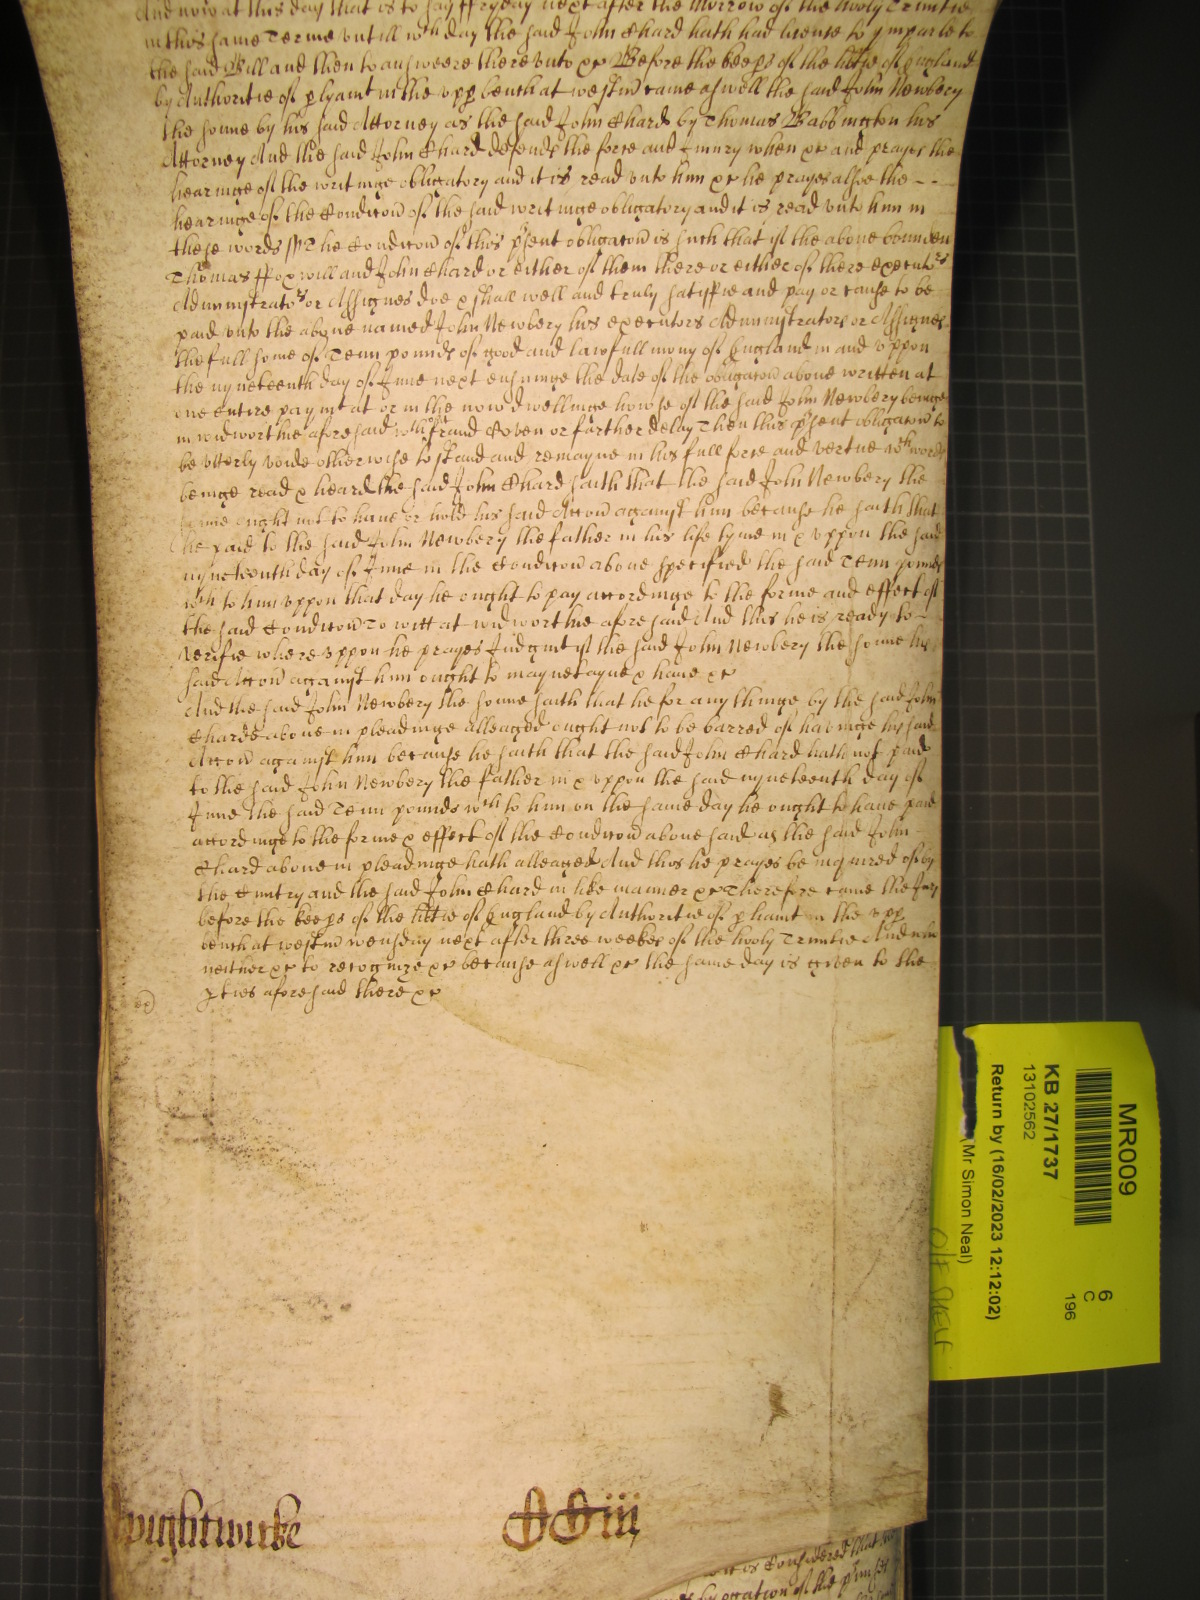 And now at this day that is to say ffryday next after the Morrow of the hooly Trinitie
in this same Terme untill wch day the said John Chard hath had license to ymparle to
the said Bill and then to answeere thereunto &c Before the keeps of the libtie of England
by Authoritie of plyamt in the upp bench at westm came aswell the said John Newbery
the sonne by his said Attorney as the said John Chard by Thomas Babbington his
Attorney And the said John Chard defends the force and iniury when &c and prayes the
hearinge of the writinge obligatory and it is read unto him &c he prayes alsoe the - -
hearinge of the Condicon of the said writinge obligatory and it is read unto him in
these words ss The Condicon of this psent obligacon is such that if the above bounden
Thomas ffoxwill and John Chard or either of them there or either of there executors
Administrators or Assignes doe & shall well and truly satisfie and pay or cause to be
paid unto the above named John Newbery his executors Administrators or Assignes
the full some of Tenn pounds of good and lawfull mony of England in and uppon
the nyneteenth day of June next ensuinge the date of the obligacon above written at
one entire paymt at or in the now dwellinge howse of the said John Newbery beinge
in widworthie aforesaid wthout fraud Coven or further delay Then this psent obligacon to
be utterly voide otherwise to stand and remayne in his full force and vertue wch words
beinge read & heard the said John Chard saith that the said John Newbery the
sonne ought not to have or hold his said Accon against him because he saith that
he paid to the said John Newbery the father in his life tyme in & uppon the said
nyneteenth day of June in the Condicon above specified the said Tenn pounds
wch to him uppon that day he ought to pay accordinge to the forme and effect of
the said Condicon To witt at widworthie aforesaid And this he is ready to -
verifie whereuppon he prayes Judgmt if the said John Newbery the sonne his
said Accon against him ought to mayneteyne & have &c
And the said John Newbery the sonne saith that he for any thinge by the said John
Chard above in pleadinge alleaged ought not to be barred of havinge his said
Accon against him because he saith that the said John Chard hath not paid
to the said John Newbery the father in & uppon the said nyneteenth day of
June the said Tenn pounds wch to him on the same day he ought to have paid
accordinge to the forme & effect of the Condicon abovesaid as the said John
Chard above in pleadinge hath alleaged And this he prayes be inquired of by
the Cuntry and the said John Chard in like manner &c Therefore came the Jury
before the keeps of the libtie of England by Authoritie of pliamt in the upp
bench at westm wensday next after three weekes of the hooly Trinitie And who
neither &c to recognize &c because aswell &c the same day is given to the
pties aforesaid there &c
wightwicke
MR009
KB 27/1737
13102562
Return by (16/02/2023 12:12:02)
(Mr Simon Neal)
6
C
196
O/F SHELF